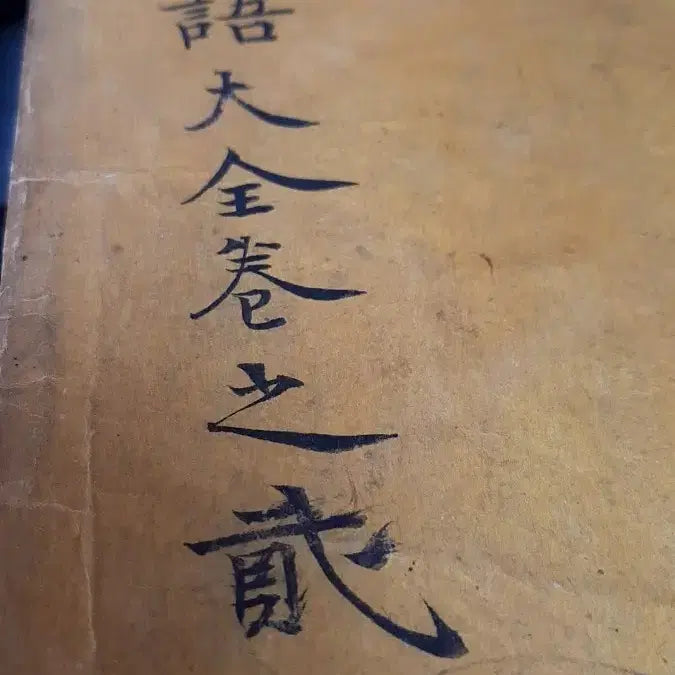 語大全卷之貳